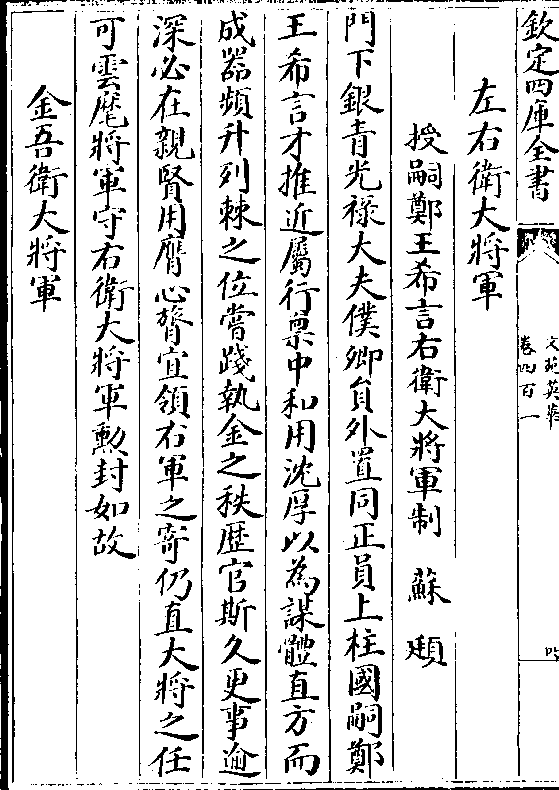 欽定四庫全書
文苑英華
卷四百一
左右衛大將軍
授嗣鄭王希言右衛大將軍制 蘇頲
門下銀青光祿大夫僕卿貟外置同正員上柱國嗣鄭
王希言才推近屬行禀中和用沈厚以為謀體直方而
成器頻升列棘之位嘗踐執金之秩歴官斯久更事逾
深必在親賢用膺心膂宜領右軍之寄仍直大將之任
可雲麾將軍守右衛大將軍勲封如故
金吾衛大將軍